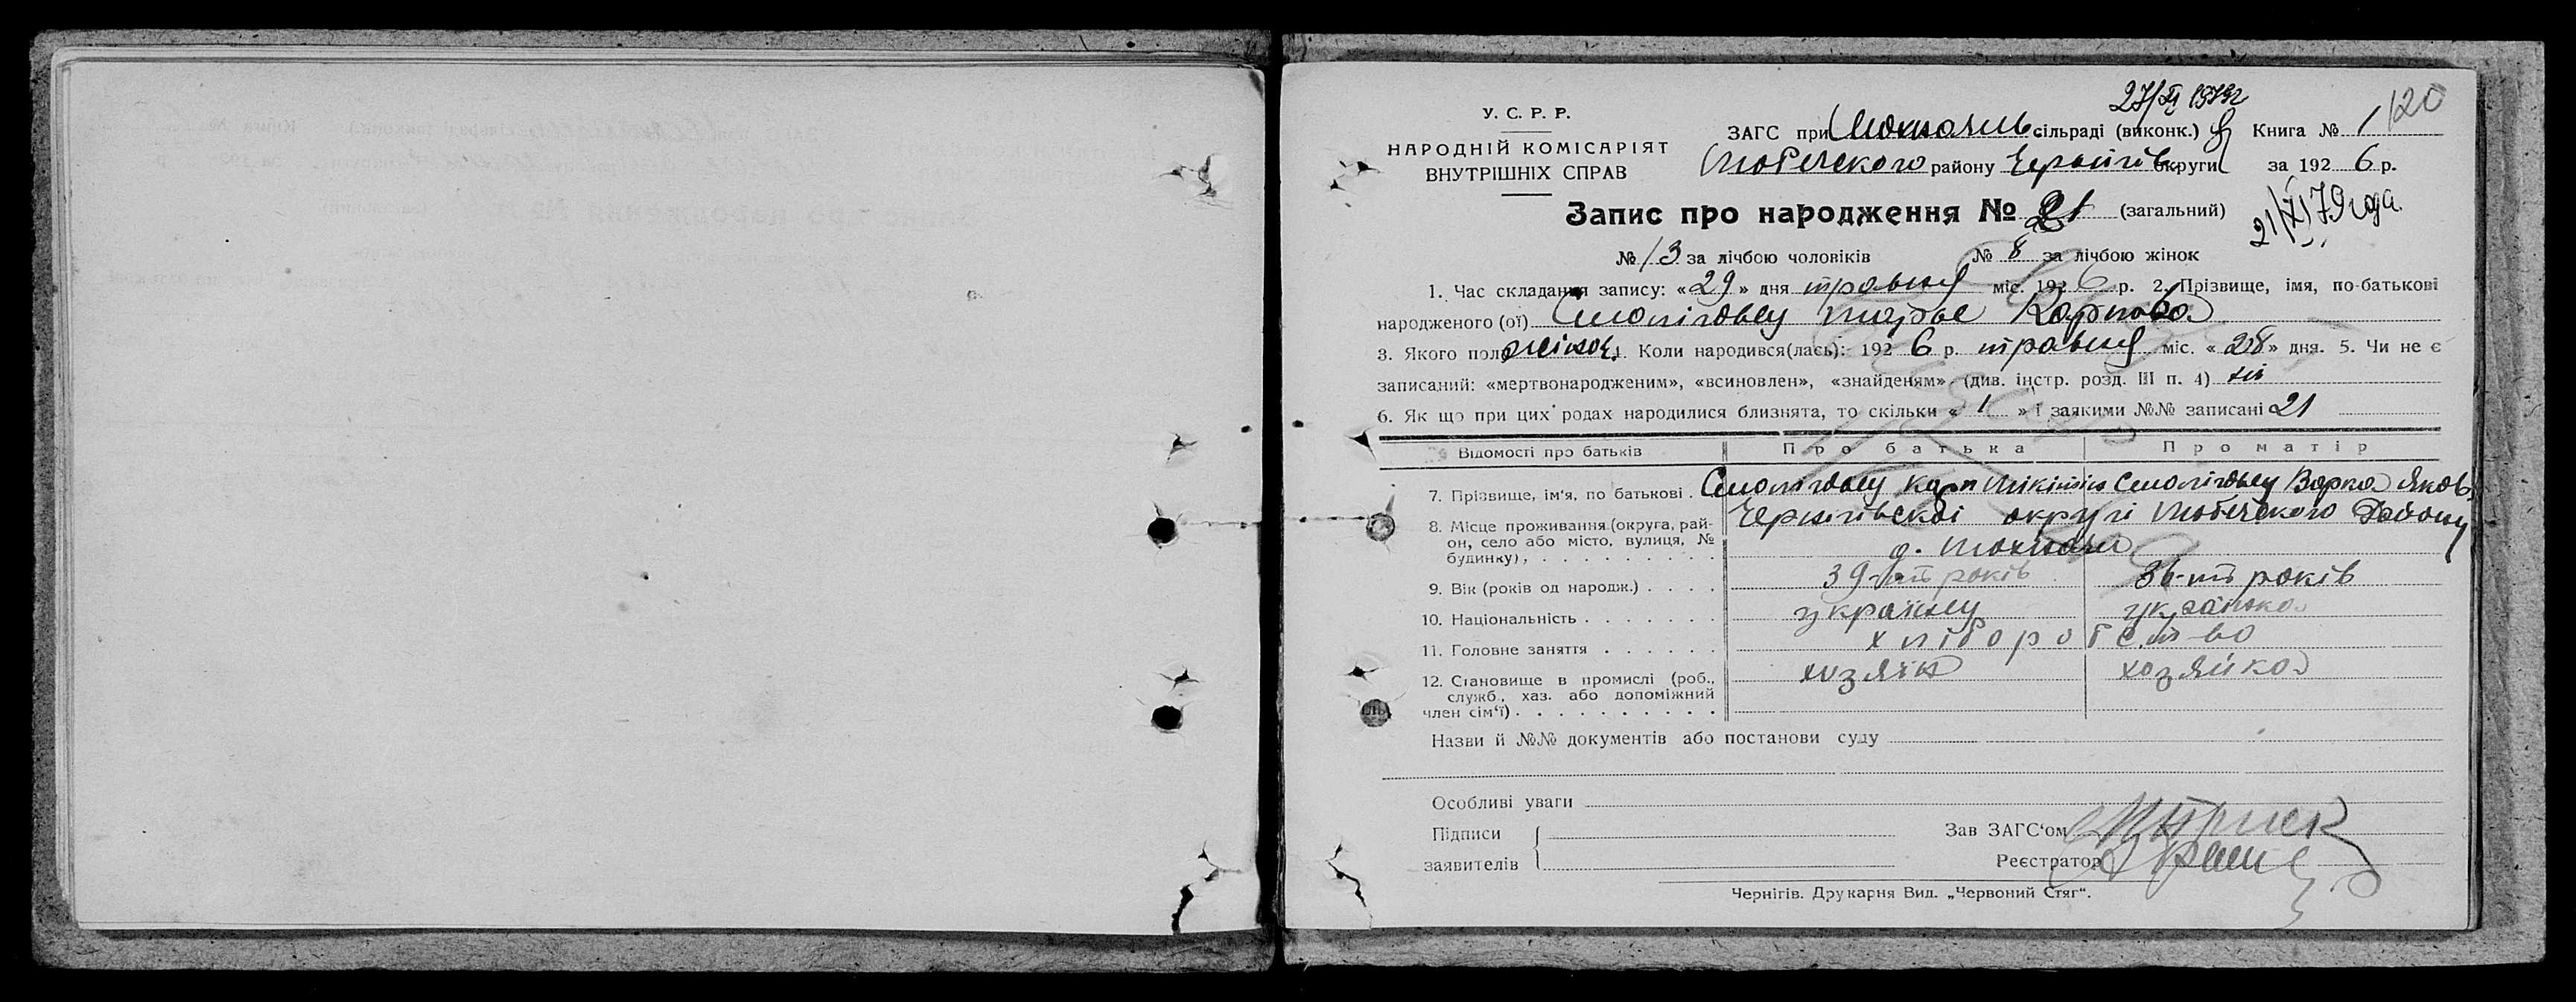 27/XI 1979г
120
У. С. Р. Р.
НАРОДНІЙ КОМІСАРІЯТ
ВНУТРІШНІХ СПРАВ
ЗАГС при сільраді (виконк.) Книга № 1
району Чернігів округи за 192 6 р.
Запис про народження № 21 (загальний)
21/XI 79 года
№ 13 за лічбою чоловіків № 8 за лічбою жінок
1. Час складання запису: «29» дня травня міс. 192 6 р. 2. Прізвище, імя, по-батькові
народженого (ої) Карповa
3. Якого полу жіноч. 4. Коли народився(лась): 192 6 р. травня міс. «28» дня. 5. Чи не є
записаний: «мертвонародженим», «всиновлен», «знайденям» (див. інстр. розд. III п. 4) ні
6. Як що при цих родах народилися близнята, то скільки « 1 » і заякими №№ записані 21
Відомості про батьків Про батька Про матір
7. Прізвище, ім'я, по батькові . Карп Варка Яков.
8. Місце проживання (округа, рай-
он, село або місто, вулиця, №
будинку), . . . . . . . . . .
Чернігівскоі округі Району
9. Вік (років од народж.) . . . . 39-ть років 36-ть років
10. Національність . . . . . . . українец українка
11. Головне заняття . . . . . . хліборобство
12. Становище в промислі (роб.,
служб., хаз. або допоміжний
член сім'ї) . . . . . . . . . .
хозяїн хозяйка
Назви й №№ документів або постанови суду
Особливі уваги
Підписи
заявителів
Зав ЗАГС'ом
Реєстратор
Чернігів. Друкарня Вид. „Червоний Стяг“.